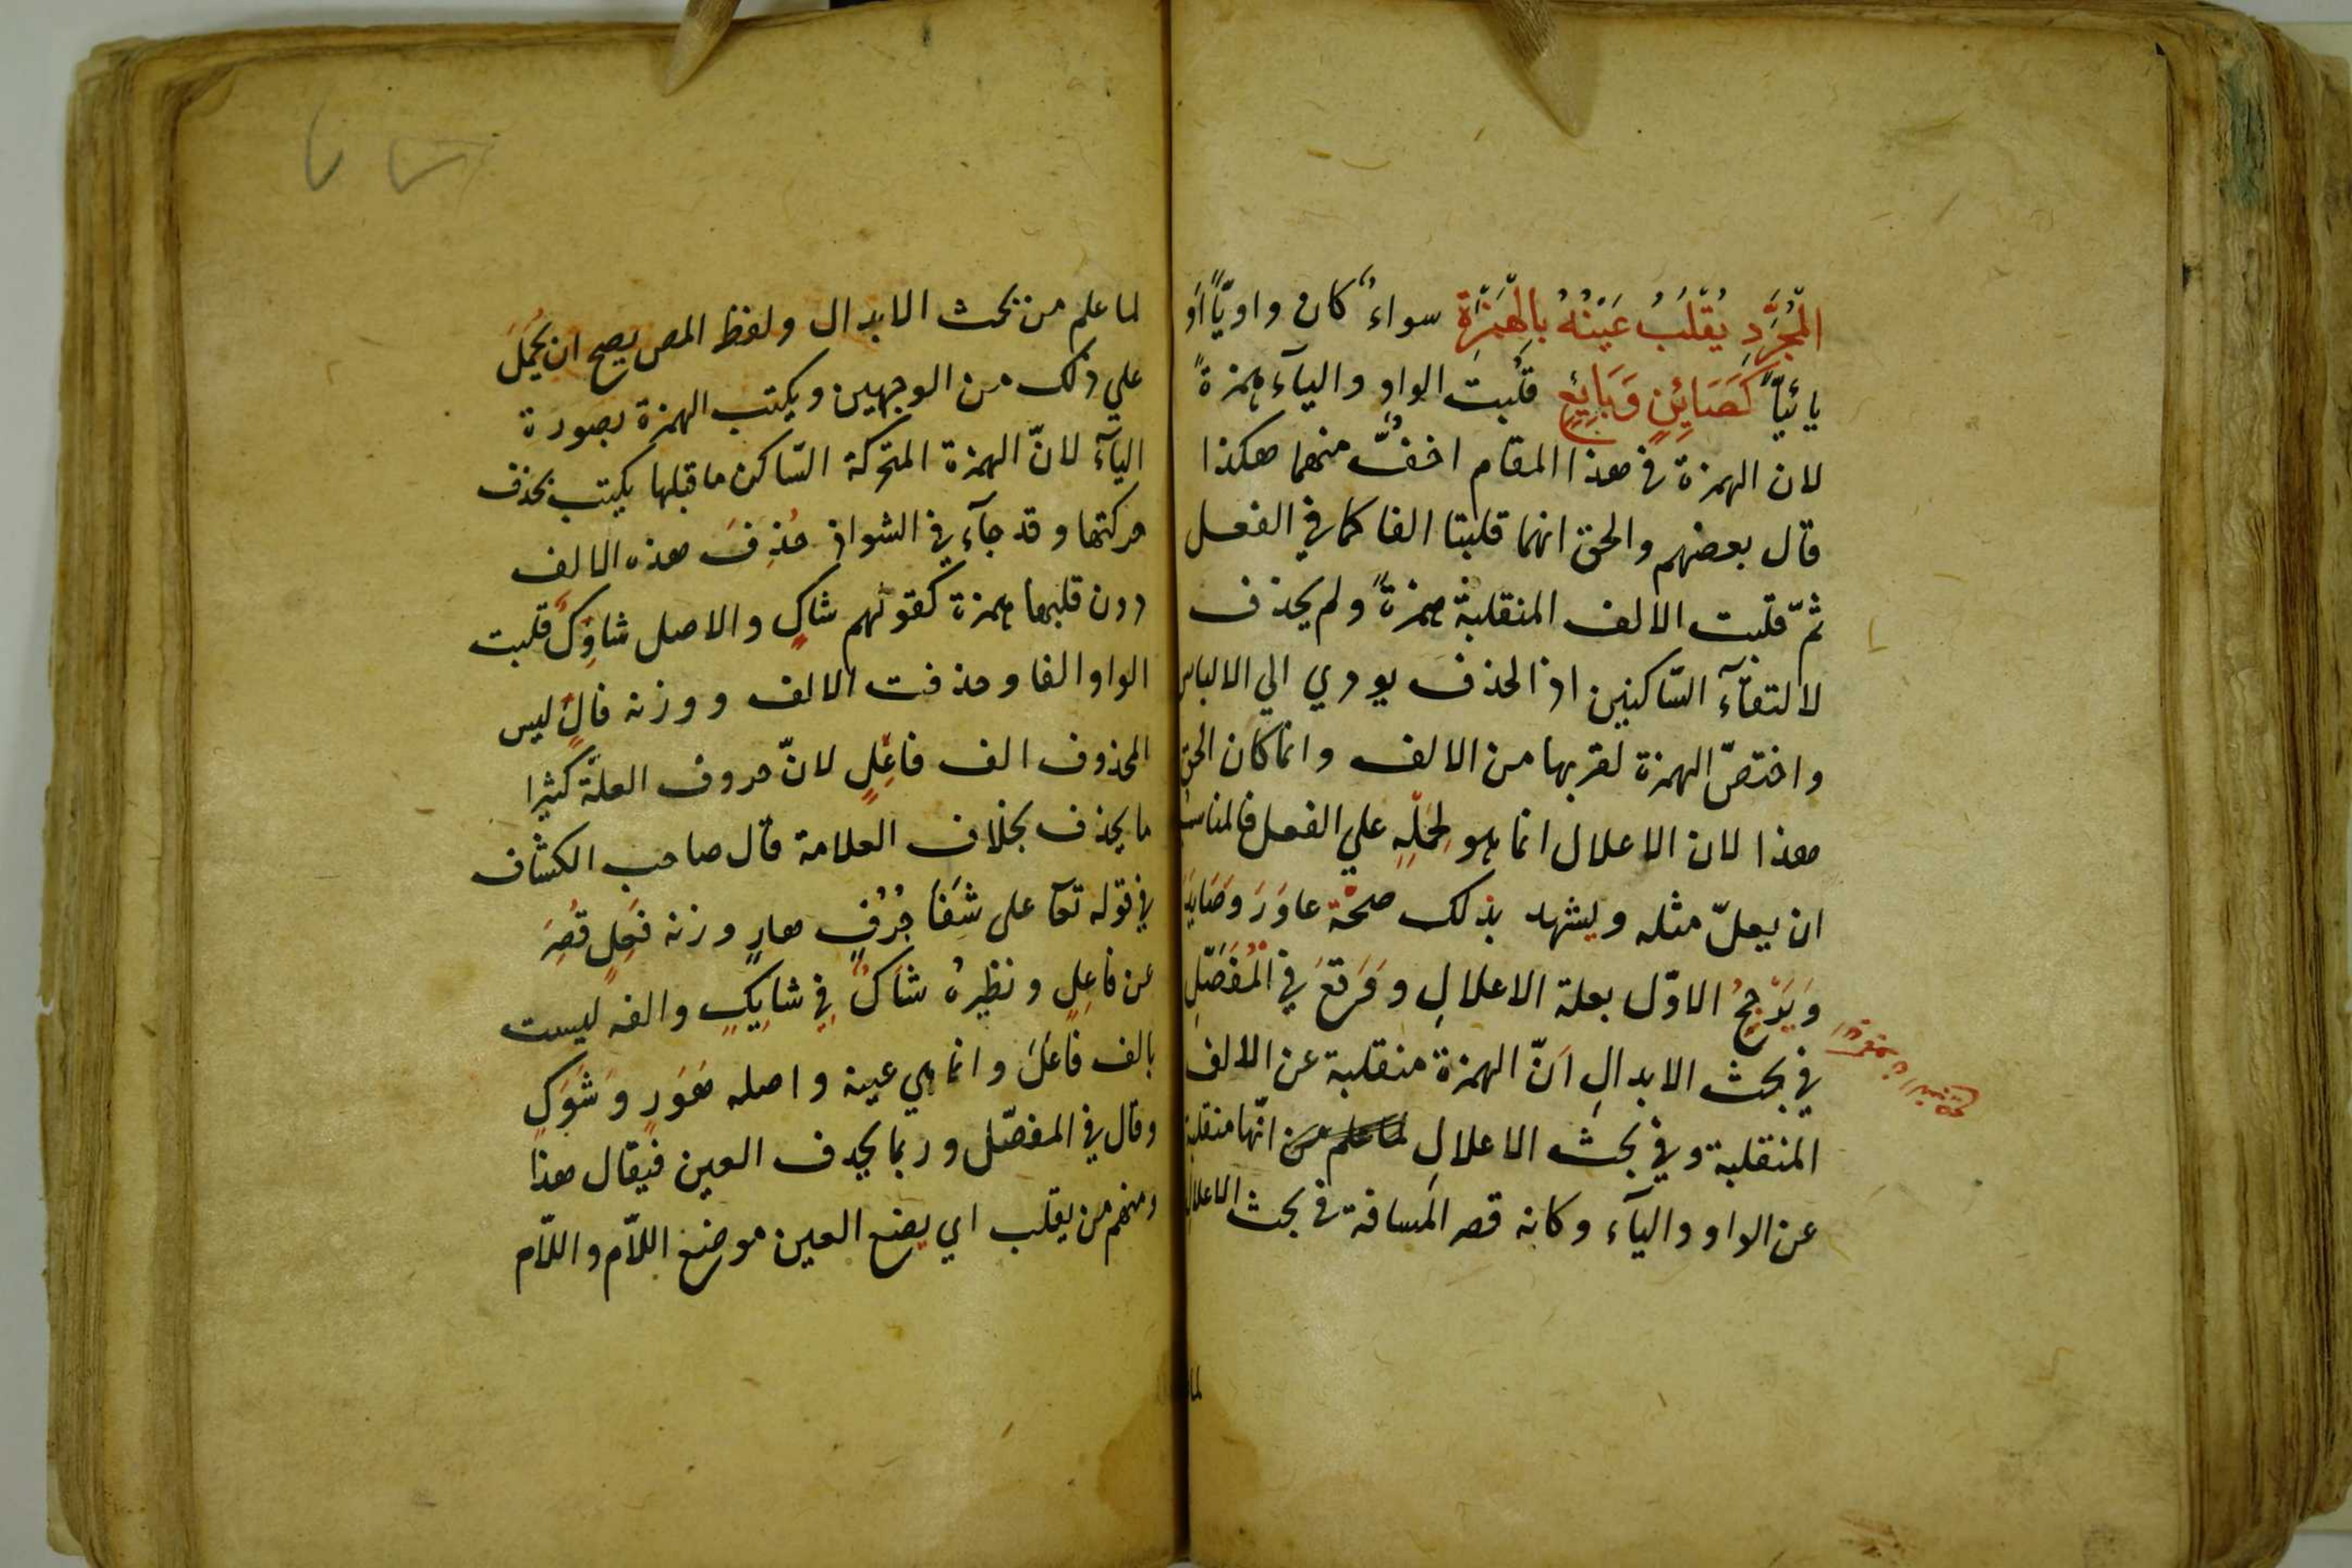 الْمُجَرَّدِ يُقْلَبُ عَيْنُهُ بِالْهَمْزَةِ سواءٌ كان واويًّا او
يائيًّا كَصَائِنٍ وَبَائِعٍ قلبت الواو واليآء همزةً
لان الهمزة في هذا المقام اخفُّ منهما هكذا
قال بعضهم والحق انهما قلبتا الفا كما في الفعل
ثمّ قلبت الالف المنقلبة همزةً ولم يحذف
لالتقآء السّاكنين اذ الحذف يودي الي الالباس
واختصّ الهمزة لقربها من الالف وانما كان الحق
هذا لان الاعلال انما هو لِحَمْلِهِ علي الفعل فالمناسب
ان يعلّ مثله ويشهد بذلك صحّة عاوَرَ وَصَايَدَ
وَيَرْجِحُ الاوّل بعلة الاعلالِ وَوَقَعَ في الْمُفَصَّلِ
في بحث الابدالِ اَنّ الهمزة منقلبة عن الالف
المنقلبة وفي بحث الاعلالِ لما علم من انّها منقلبة
عن الواو واليآء وكانه قصر المسافة في بحث الاعلال
لما
لما علم من بحث الابدال ولفظ المص يصح ان يُحْمَلَ
علي ذلك من الوجهين ويكتب الهمزة بصورة
اليآء لانّ الهمزة المتحركة السّاكن ما قبلها يكتب بحذف
حركتها وقد جآء في الشواذ حُذِفَ هذه الالف
دون قلبها همزة كقولهم شاكٍ والاصل شاوِكٌ قلبت
الواو الفا وحذفت الالف ووزنه فالٌ ليس
المحذوف الف فاعِلٍ لانّ حروف العلّة كثيرا
ما يحذف بخلاف العلامة قال صاحب الكشّاف
في قوله تعآ على شَفَا جُرُفٍ هارٍ وزنه فَعِلٍ قُصِرَ
عن فاعِلٍ ونظيرُه شاكٌ في شايِكٍ والفه ليست
بالف فاعل وانما هي عينه واصله هَوَرٍ وَشَوَكٍ
وقال في المفصّل وربما يحدف العين فيقال هذا
ومنهم من يقلب اي يضع العين موضع اللاّم واللاّم